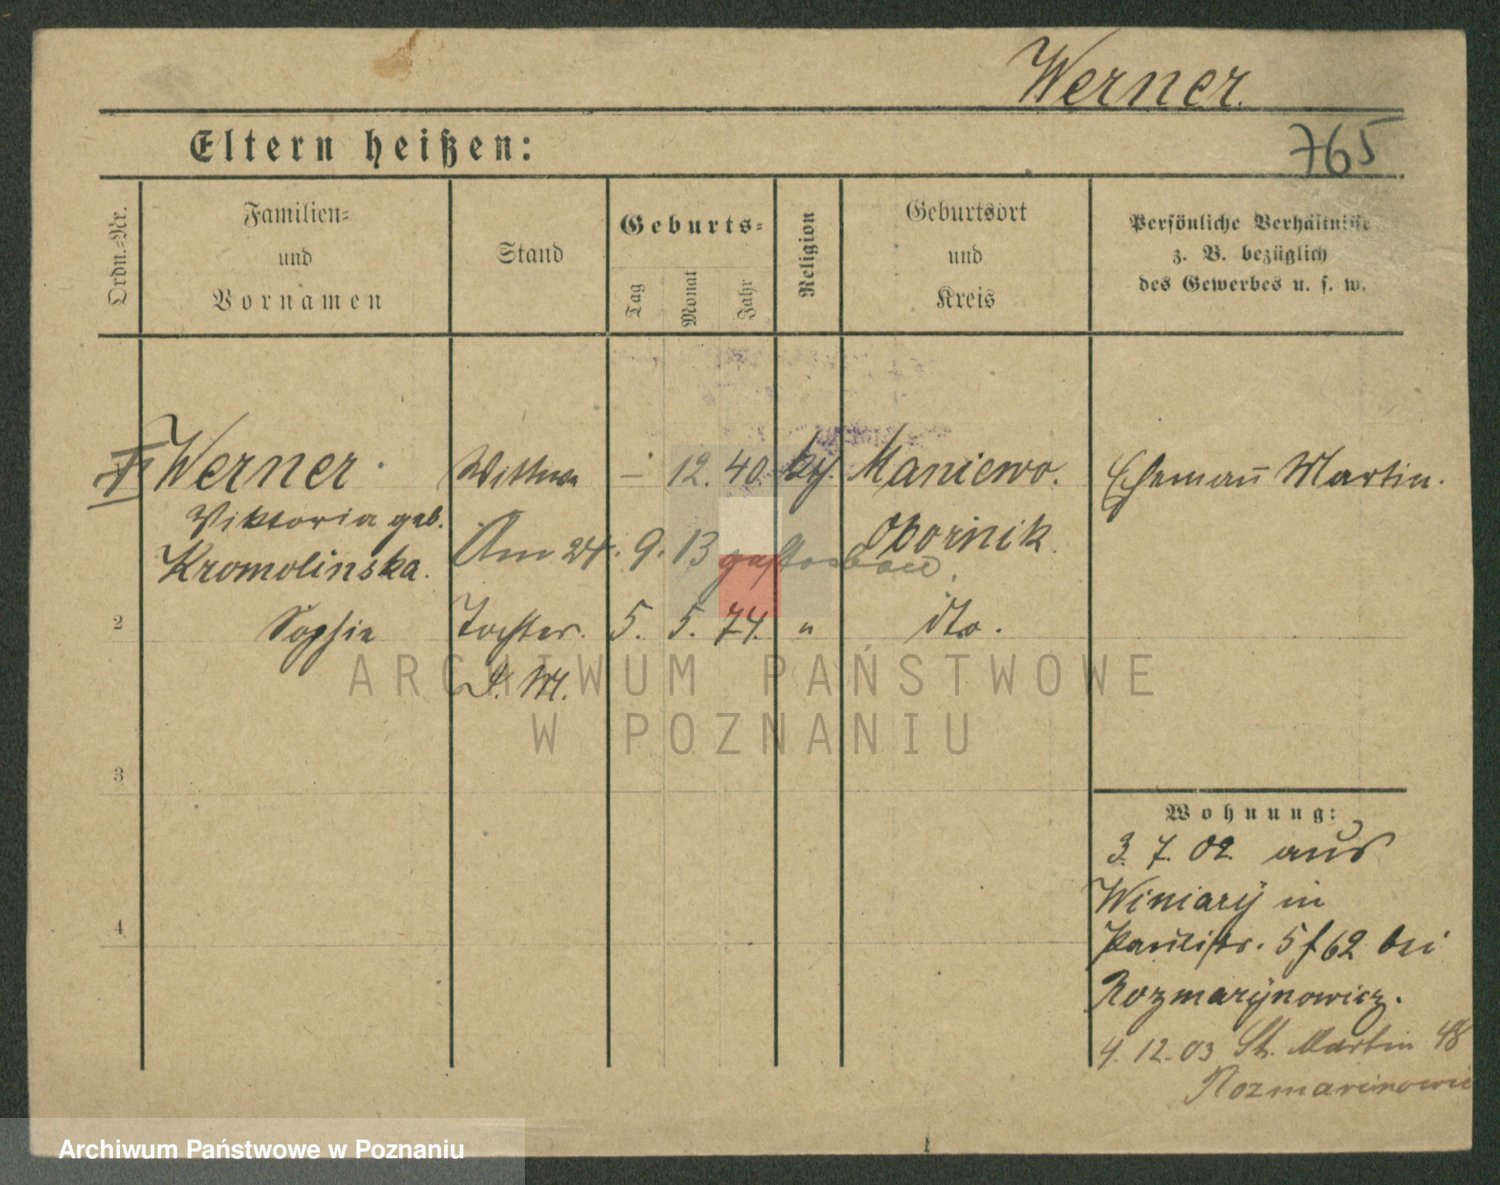 Werner.
Eltern heißen:
765
Ordn.-Nr.
Familien-
und
Vornamen
Stand
Geburts-
Tag
Monat
Jahr
Religion
Geburtsort
und
Kreis
Persönliche Verhältnisse
z. B. bezüglich
des Gewerbes u. s. w.
Werner. Wittwe — 12. 40. Maniewo. Ehemañ Martin.
Viktoria geb. Obornik.
Kromolinska. Am 24. 9. 13 gestorben.
2 Sophie Tochter. 5. 5. 74. " dto.
d. M.
ARCHIWUM PAŃSTWOWE
W POZNANIU
3
Wohnung:
3. 7. 02. aus
4
Winiary in
Paulistr. 5 f 62 bei
Rozmarynowicz.
4. 12. 03 St. Martin 48
Rozmarinowic
Archiwum Państwowe w Poznaniu